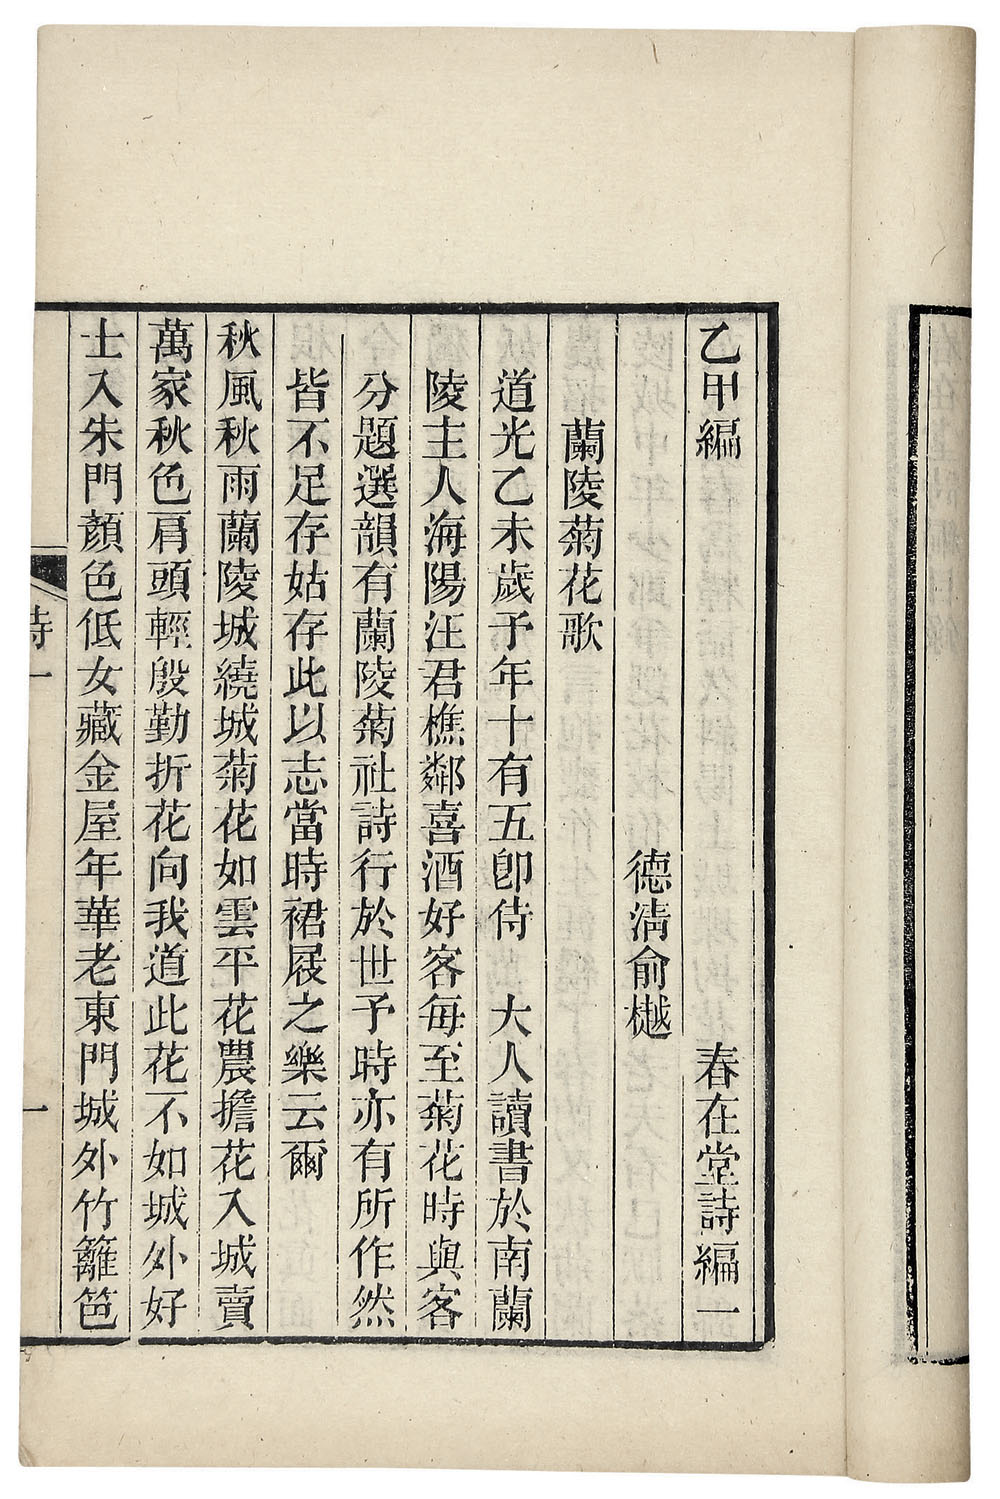 乙甲編　春在堂詩編一
德淸俞樾
蘭陵菊花歌
道光乙未歲予年十有五卽侍　大人讀書於南蘭
陵主人海陽汪君樵鄰喜酒好客每至菊花時與客
分題選韻有蘭陵菊社詩行於世予時亦有所作然
皆不足存姑存此以志當時裙屐之樂云爾
秋風秋雨蘭陵城繞城菊花如雲平花農擔花入城賣
萬家秋色肩頭輕殷勤折花向我道此花不如城外好
士入朱門顏色低女藏金屋年華老東門城外竹籬笆
詩一
一